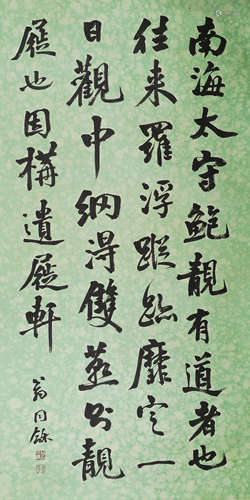 南海太守鲍靚有道者也
往来羅浮蹤跡靡定一
日觀中網得雙燕乃靚
屐也因構遺屐軒
翁同龢